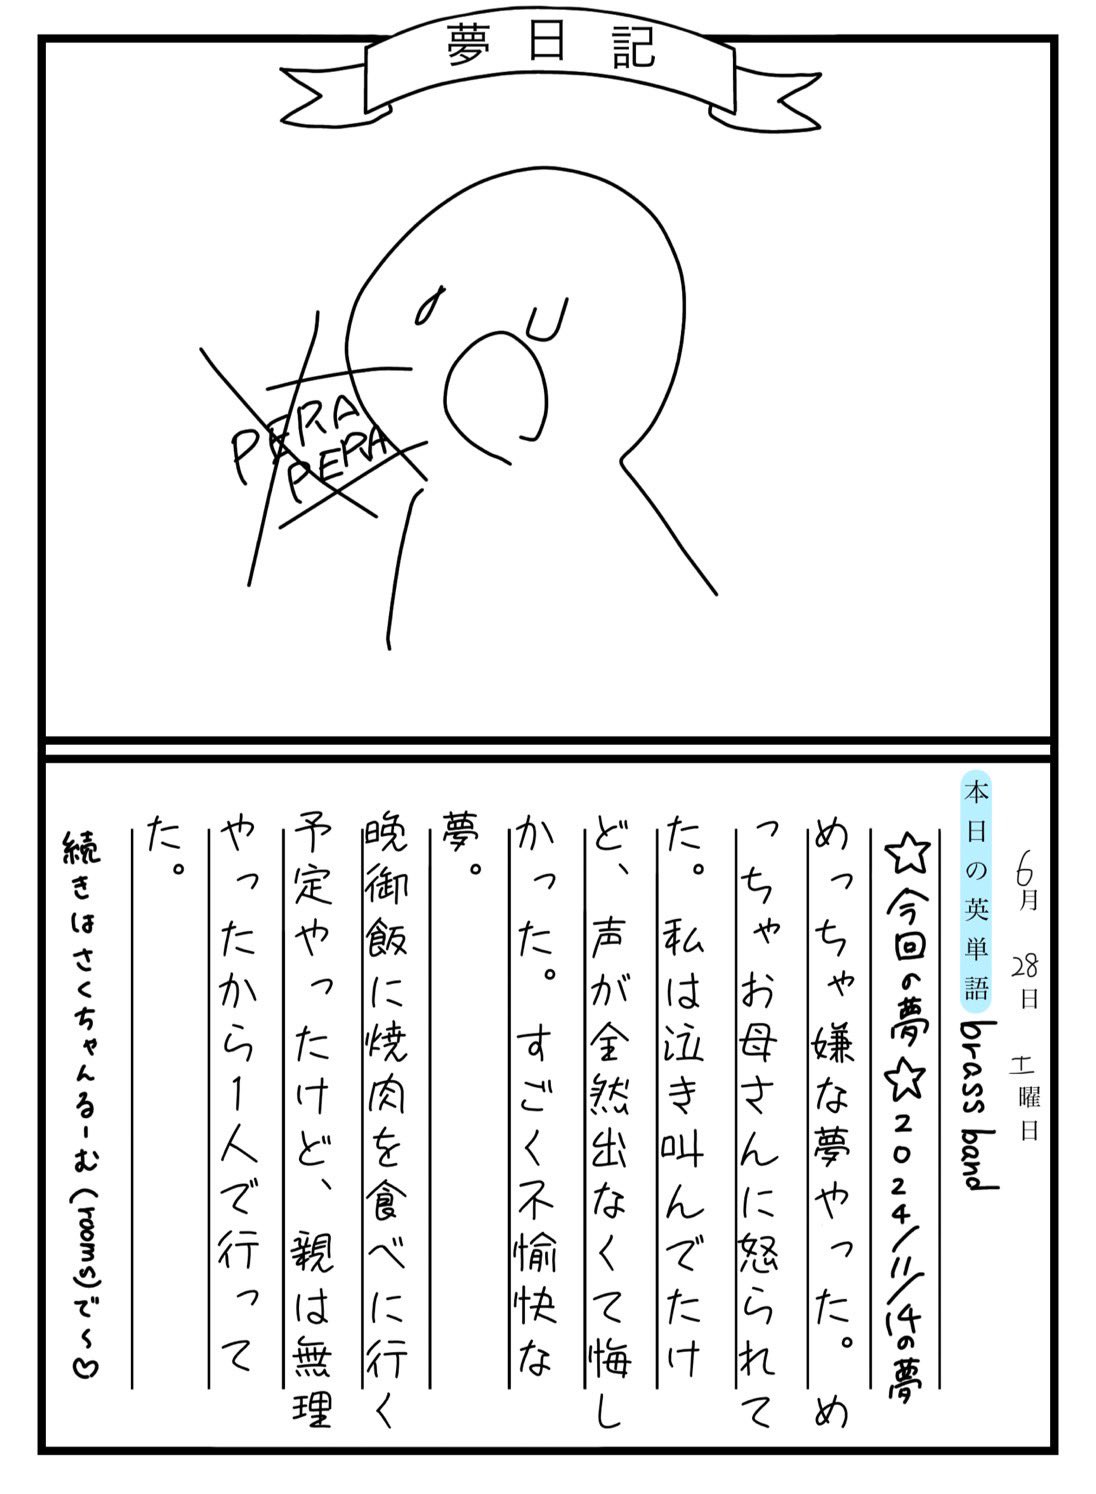 夢日記
PERA
PERA
6月 28日 土曜日
本日の英単語 brass band
☆今回の夢☆2024/11/14の夢
めっちゃ嫌な夢やった。め
っちゃお母さんに怒られて
た。私は泣き叫んでたけ
ど、声が全然出なくて悔し
かった。すごく不愉快な
夢。
晩御飯に焼肉を食べに行く
予定やったけど、親は無理
やったから1人で行って
た。
続きはさくちゃんるーむ(rooms)で〜♡